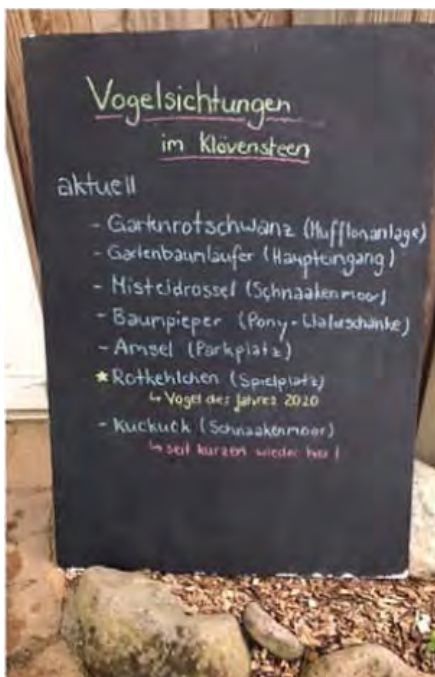 Vogelsichtungen
im Klövensteen
aktuell
- Gartenrotschwanz (Mufflonanlage)
- Gartenbaumläufer (Haupteingang)
- Misteldrossel (Schnaakenmoor)
- Baumpieper (Pony-Waldschänke)
- Amsel (Parkplatz)
★ Rotkehlchen (Spielplatz)
↳ Vogel des Jahres 2020
- Kuckuck (Schnaakenmoor)
↳ seit kurzen wieder hier!